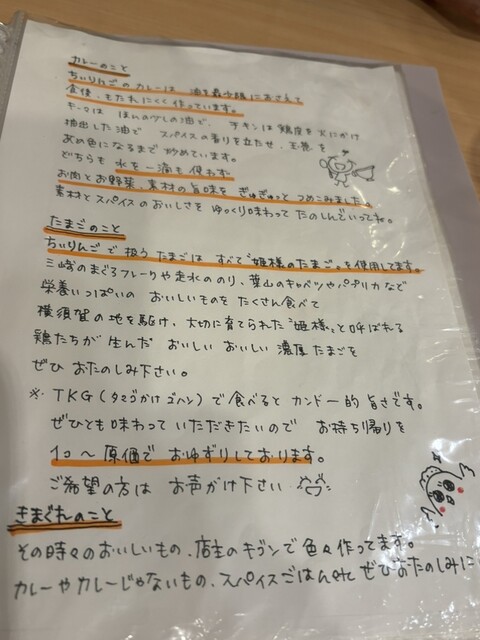 カレーのこと
ちぃりんごのカレーは 油を最少限におさえて
食後、もたれにくく作っています。
キーマは ほんの少しの油で、 チキンは鶏皮を火にかけ
抽出した油で スパイスの香りを立たせ、玉葱を
あめ色になるまで炒めています。
どちらも 水を一滴も使わず
お肉とお野菜、素材の旨味を ぎゅぎゅっと つめこみました。
素材とスパイスのおいしさを ゆっくり味わって たのしんでいってね。
たまごのこと
ちぃりんごで扱うたまごは すべて“姫様のたまご”を使用してます。
三崎のまぐろフレークや走水ののり、葉山のキャベツやパプリカなど
栄養いっぱいの おいしいものを たくさん食べて
横須賀の地を駆け、大切に育てられた“姫様”と呼ばれる
鶏たちが生んだ おいしい おいしい 濃厚たまごを
ぜひ おたのしみ下さい。
※ TKG(タマゴかけゴハン)で食べると カンドー的旨さです。
ぜひとも味わって いただきたいので お持ち帰りを
1コ〜原価で おゆずりしております。
ご希望の方は お声がけ下さい
きまぐれのこと
その時々のおいしいもの、店主のキブンで色々作ってます。
カレーやカレーじゃないもの、スパイスごはんetc ぜひおたのしみに